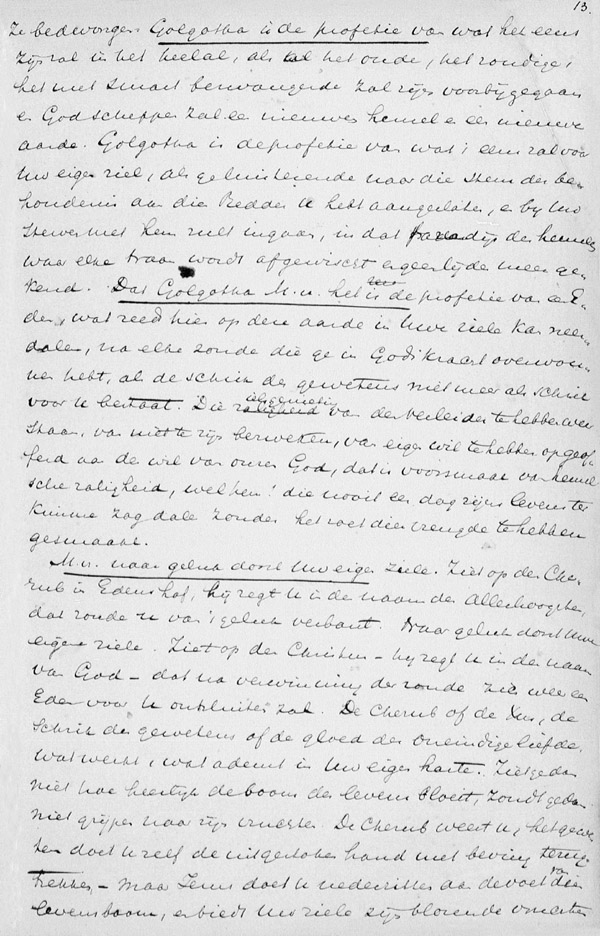 13.
te bedwongen. Golgotha is de profetie van wat het eens
zijn zal in het heelal, als al het oude, het zondige,
het met smart bezwangerde zal zijn voorbijgegaan
en God scheppen zal een nieuwen hemel en een nieuwe
aarde. Golgotha is de profetie van wat 't eens zal voor
Uw eigen ziel, als geluisterende naar die stem des be-
houdenis aan die Redder U hebt aangesloten, en bij Uw
sterven met hem zult ingaan, in dat paradijs des hemels
waar elke traan wordt afgewischt en geen lijden meer ge-
kend. Dat Golgotha M.v. het is de profetie van een E-
den, wat reeds hier op deze aarde in Uwe ziele kan neer-
dalen, na elke zonde die ge in Gods kracht overwon-
nen hebt, als de schrik des gewetens niet meer als schrik
voor U bestaat. Die zaligheid van den verleider te hebben weer-
staan, van niet te zijn bezweken, van eigen wil te hebben opgeof-
ferd aan de wil van onzen God, dat is voorsmaak van hemel-
sche zaligheid, wel hem! die nooit een dag zijns levens ter
kimme zag dalen zonder het zoet dier vreugde te hebben
gesmaakt.
M.v. naar geluk dorst Uw eigen ziele. Ziet op den Che-
rub in Edens hof, hij zegt U in de naam des Allerhoogsten,
dat zonde U van 't geluk verbant. Naar geluk dorst Uwe
eigene ziele. Ziet op den Christus – hij zegt U in den naam
van God – dat na verwinning der zonde zich weer een
Eden voor U ontsluiten zal. De Cherub of de Xus, de
schrik des gewetens of de gloed der oneindige liefde,
wat werkt, wat ademt in Uw eigen harte. Ziet ge dan
niet hoe heerlijk de boom des levens bloeit, zoudt ge dan
niet grijpen naar zijn vruchten. De Cherub weert U, het gewe-
ten doet U zelf de uitgestoken hand met beving terug-
trekken, – maar Jezus doet U nederzitten aan de voet van dien
levensboom, en biedt Uw ziele zijn blozende vruchten